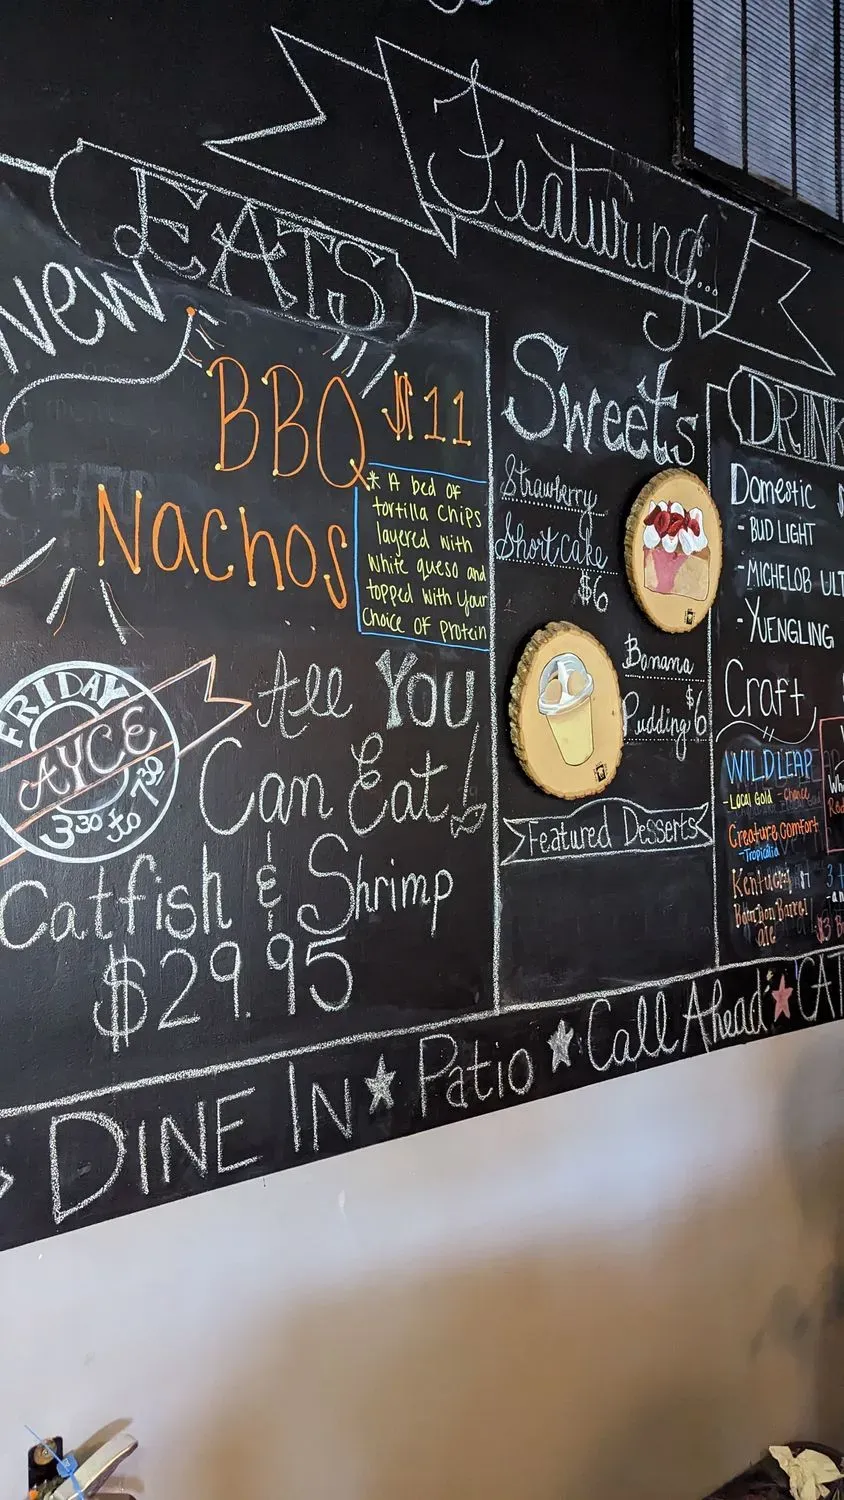 Featuring...
EATS
New
BBQ $11
Nachos
* A bed of
tortilla chips
layered with
white queso and
topped with your
choice of protein
FRIDAY
AYCE
3:30 to 7:30
All You
Can Eat!
Catfish & Shrimp
$29.95
Sweets
Strawberry
Shortcake
$6
Banana
Pudding $6
Featured Desserts
DRINK
Domestic
- BUD LIGHT
- MICHELOB ULT
- YUENGLING
Craft
WILD LEAP
- Local Gold - Chance
Creature Comfort
- Tropicalia
Kentucky
Bourbon Barrel
ale
DINE IN ★ Patio ★ Call Ahead ★ CAT